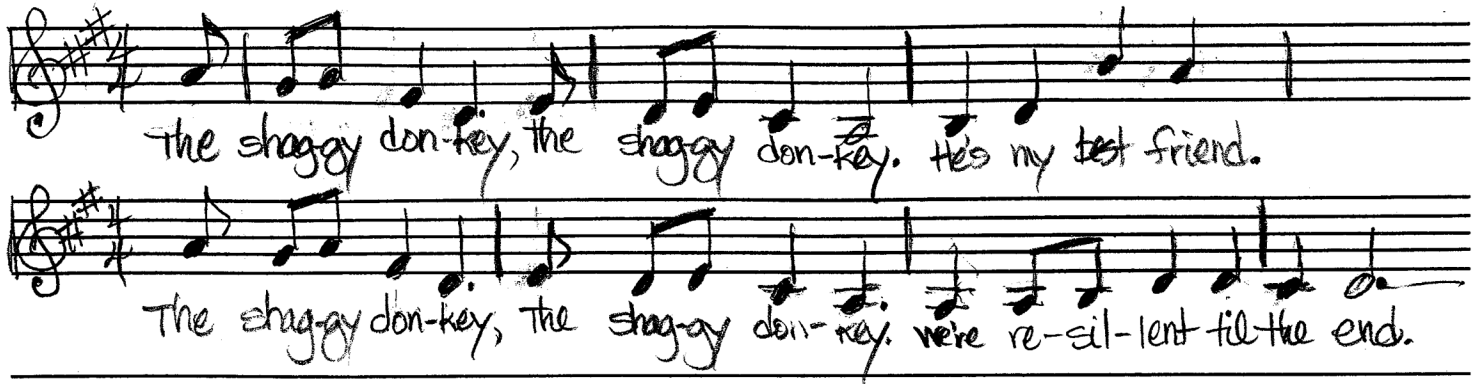 The shag-gy don-key, the shag-gy don-key. He's my best friend.
The shag-gy don-key, the shag-gy don-key. we're re-sil-lent til the end.